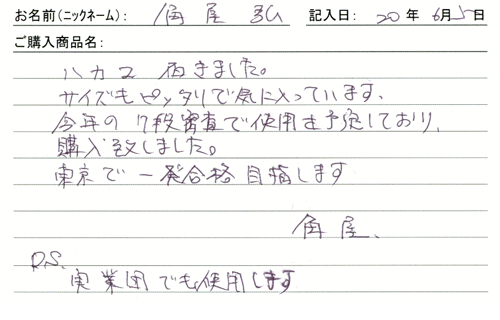 お名前(ニックネーム): 角屋 弘 記入日: 20年 6月5日
ご購入商品名:
ハカマ 届きました。
サイズもピッタリで気に入っています。
今年の 7段審査で使用を予定しており、
購入致しました。
東京で 一発合格 目指します
角屋、
P.S.
実業団でも使用します